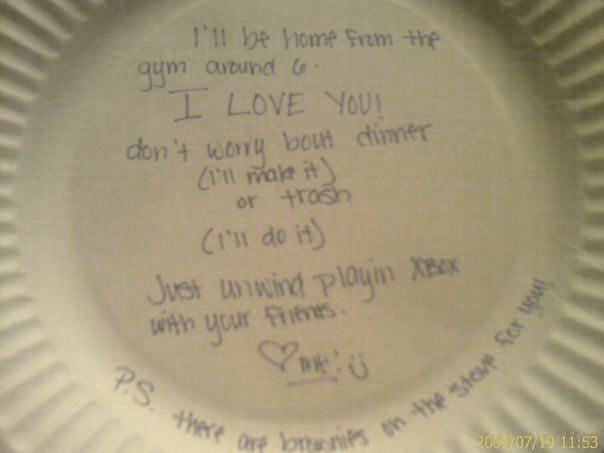 I'll be home from the
gym around 6.
I LOVE YOU!
don't worry bout dinner
(I'll make it)
or trash
(I'll do it)
Just unwind playin XBOX
with your friends.
♡ me! :)
P.S. there are brownies on the stove for you!
2009/07/19 11:53